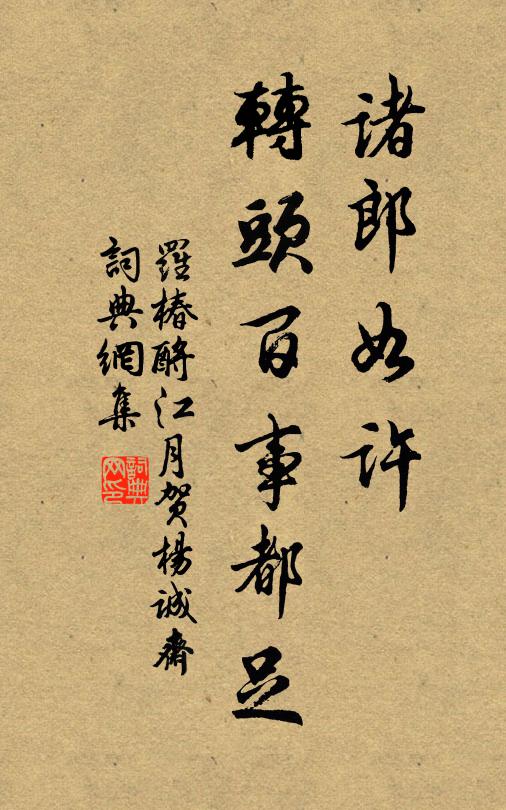 諸郎如許
轉頭百事都足
羅椿酹江月賀楊誠齋
詞典網集
詞典网印